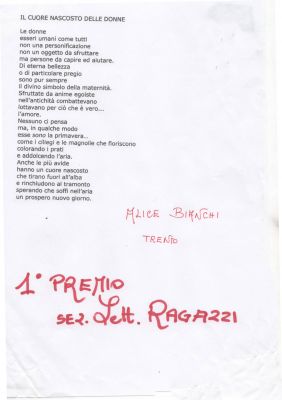 IL CUORE NASCOSTO DELLE DONNE
Le donne
esseri umani come tutti
non una personificazione
non un oggetto da sfruttare
ma persone da capire ed aiutare.
Di eterna bellezza
o di particolare pregio
sono pur sempre
il divino simbolo della maternità.
Sfruttate da anime egoiste
nell'antichità combattevano
lottavano per ciò che è vero...
l'amore.
Nessuno ci pensa
ma, in qualche modo
esse sono la primavera...
come i ciliegi e le magnolie che fioriscono
colorando i prati
e addolcendo l'aria.
Anche le più avide
hanno un cuore nascosto
che tirano fuori all'alba
e rinchiudono al tramonto
sperando che soffi nell'aria
un prospero nuovo giorno.
ALICE BIANCHI
TRENTO
1° PREMIO
SEZ. Lett. RAGAZZI